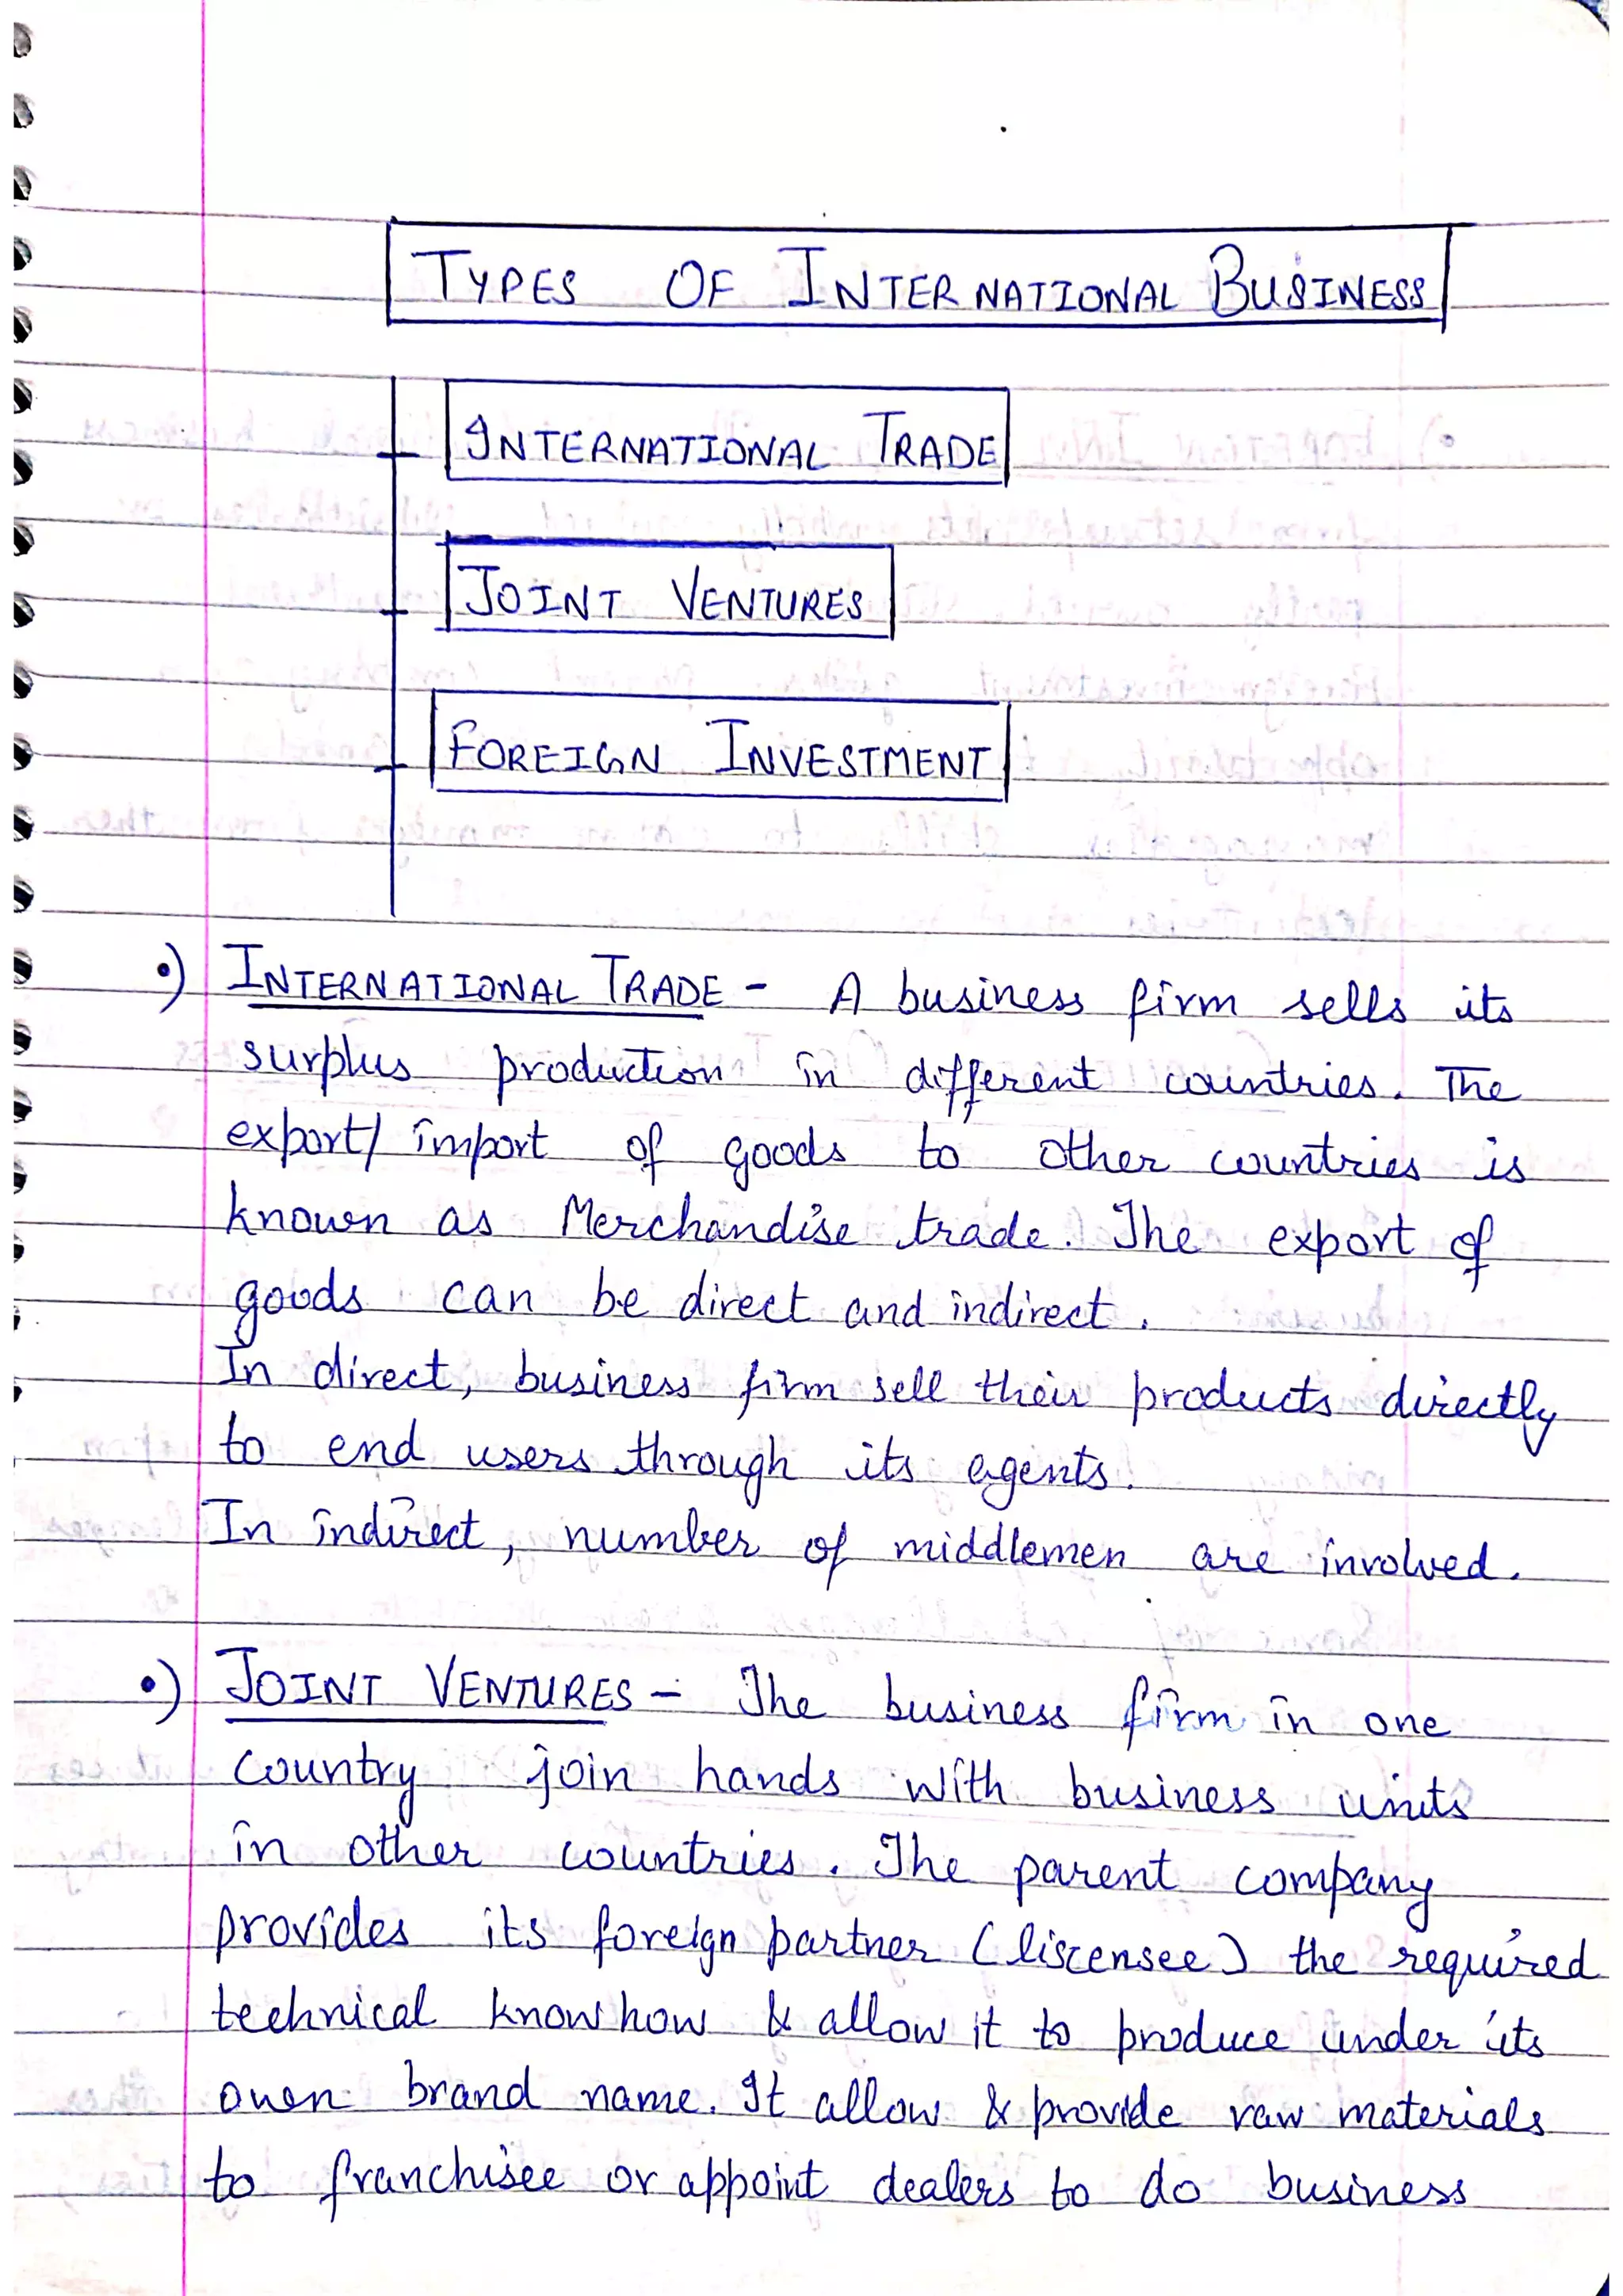 TYPES OF INTERNATIONAL BUSINESS
INTERNATIONAL TRADE
JOINT VENTURES
FOREIGN INVESTMENT
•) INTERNATIONAL TRADE - A business firm sells its
surplus production in different countries. The
export/import of goods to other countries is
known as Merchandise trade. The export of
goods can be direct and indirect.
In direct, business firm sell their products directly
to end users through its agents.
In indirect, number of middlemen are involved.
•) JOINT VENTURES - The business firm in one
country join hands with business units
in other countries. The parent company
provides its foreign partner (liscensee) the required
technical knowhow & allow it to produce under its
own brand name. It allow & provide raw materials
to franchisee or appoint dealers to do business